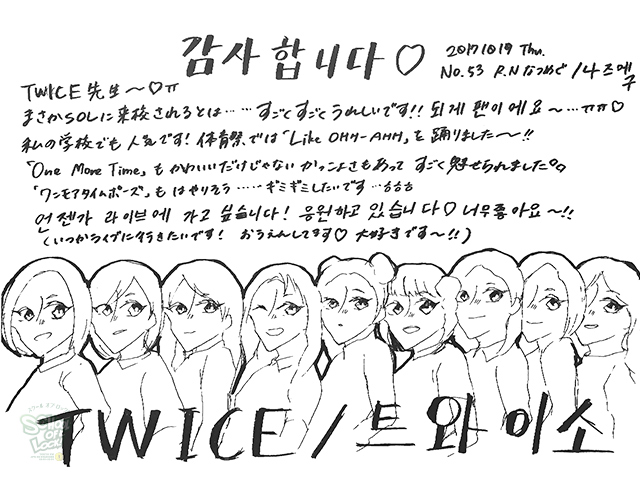 감사합니다♡
20171019 Thu.
No.53 R.Nなつめぐ/나츠메구
TWICE先生〜♡ㅠ
まさかSOLに来校されるとは……すごくすごくうれしいです!! 되게 팬이에요〜…ㅠㅠ♡
私の学校でも人気です! 体育祭では「Like OHH-AHH」を踊りました〜!!
「One More Time」もかわいいだけじゃないかっこよさもあってすごく魅せられました。
「ワンモアタイムポーズ」もはやりそう……ギミギミしたいです…
언젠가 라이브에 가고 싶습니다! 응원하고 있습니다♡너무좋아요〜!!
(いつかライブに行きたいです! おうえんしてます♡大好きです〜!!)
TWICE/트와이스